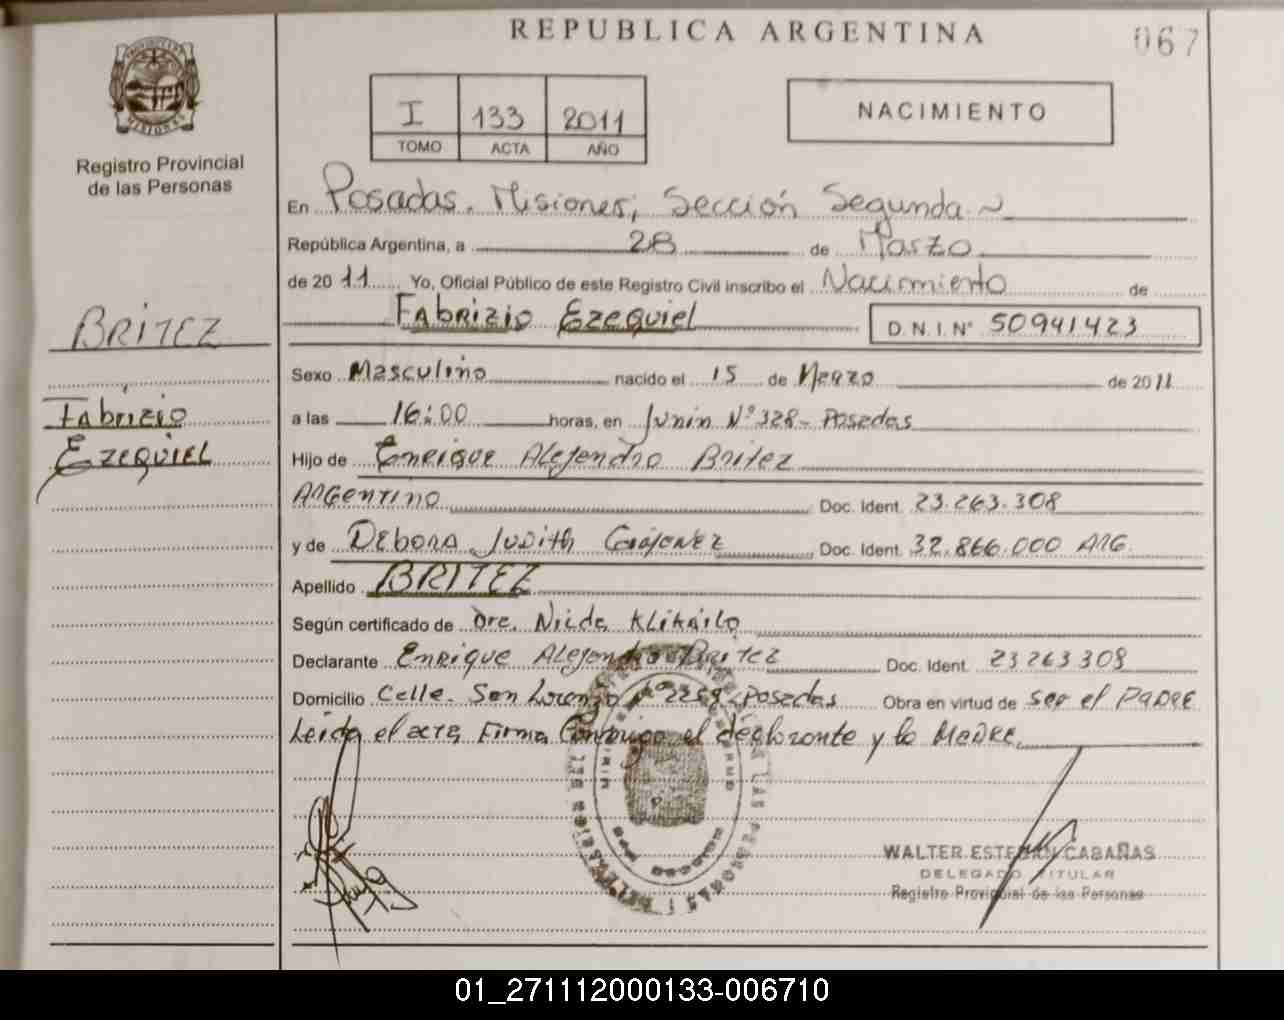 REPUBLICA ARGENTINA
067
PROVINCIA DE MISIONES
Registro Provincial
de las Personas
I 133 2011
TOMO ACTA AÑO
NACIMIENTO
En Posadas. Misiones, Sección Segunda ~
República Argentina, a 28 de Marzo
de 2011 Yo, Oficial Público de este Registro Civil inscribo el Nacimiento de
Fabrizio Ezequiel D.N.I.N° 50941423
BRITEZ
Fabrizio
Ezequiel
Sexo Masculino nacido el 15 de Marzo de 2011
a las 16:00 horas, en Junin N° 328 - Posadas
Hijo de Enrique Alejandro Britez
Argentino Doc. Ident. 23.263.308
y de Debora Judith Doc. Ident. 32.866.000 ARG.
Apellido BRITEZ
Según certificado de Dra. Nilda
Declarante Enrique Alejandro Britez Doc. Ident. 23263308
Domicilio Calle San Lorenzo N° 2258 - Posadas Obra en virtud de ser el PADRE
Leída el acta, Firma Conmigo el declarante y la Madre.
WALTER ESTEBAN CABAÑAS
DELEGADO TITULAR
Registro Provincial de las Personas
01_271112000133-006710